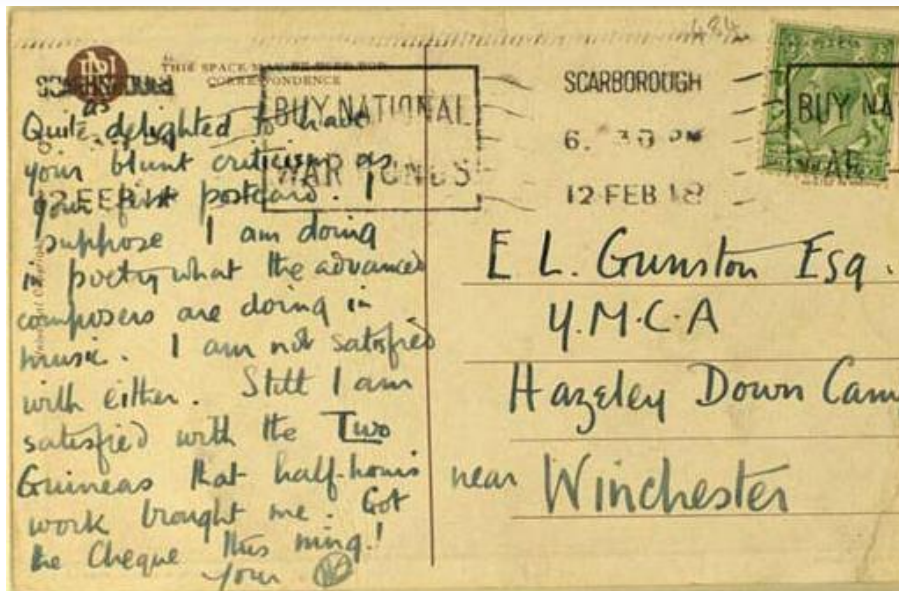 THIS SPACE MAY BE USED FOR
CORRESPONDENCE
SCARBOROUGH
6. 30 PM
12 FEB 18
BUY NATIONAL
WAR BONDS
BUY NA
WAR
12 FEB 18
484
as
Quite delighted to have
your blunt criticism as
your first postcard. I
suppose I am doing
in poetry what the advanced
composers are doing in
music. I am not satisfied
with either. Still I am
satisfied with the Two
Guineas that half-hour's
work brought me. Got
the Cheque this mng.!
Your
E L. Gunston Esq.
Y.M.C.A
Hazeley Down Cam
near Winchester